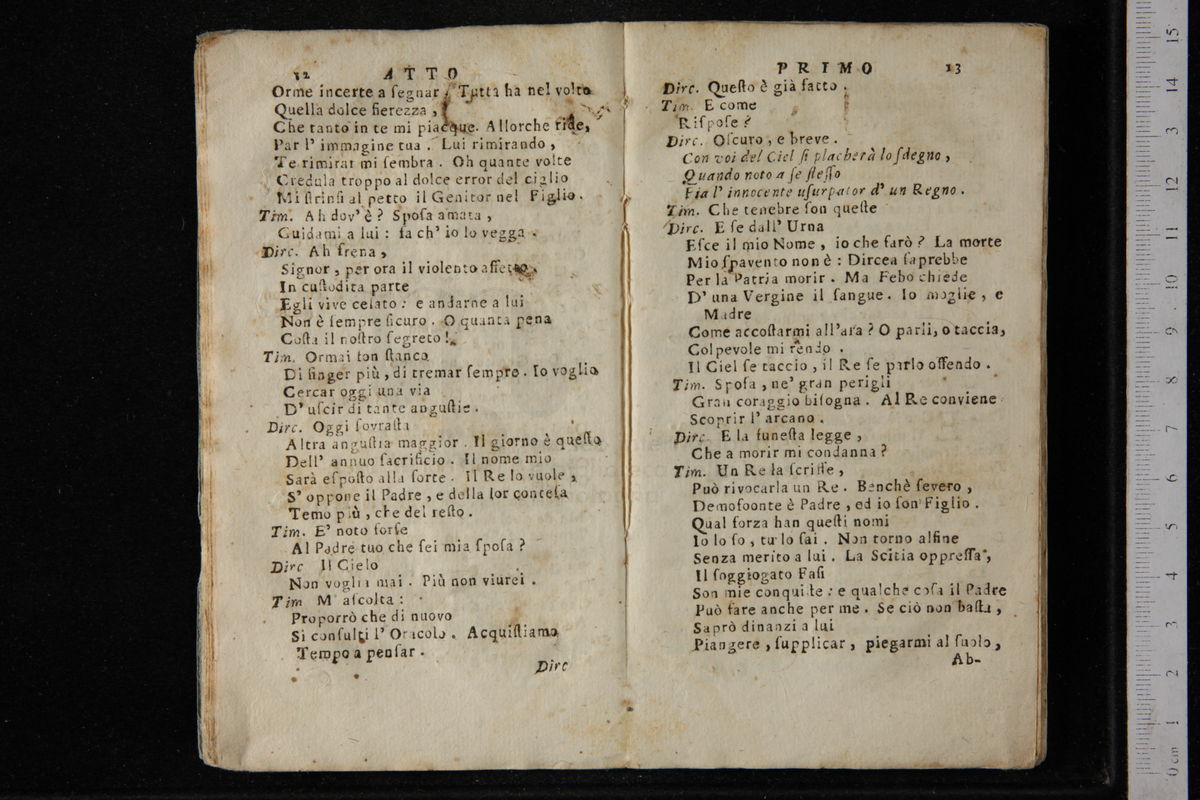 12 ATTO
Orme incerte a ſegnar. Tutta ha nel volto
Quella dolce fierezza,
Che tanto in te mi piacque. Allorche ride,
Par l' immagine tua. Lui rimirando,
Te rimirar mi ſembra. Oh quante volte
Credula troppo al dolce error del ciglio
Mi ſtrinſi al petto il Genitor nel Figlio.
Tim. Ah dov' è? Spoſa amata,
Guidami a lui: fa ch' io lo vegga.
Dirc. Ah frena,
Signor, per ora il violento affetto.
In cuſtodita parte
Egli vive celato: e andarne a lui
Non è ſempre ſicuro. O quanta pena
Coſta il noſtro ſegreto!
Tim. Ormai ſon ſtanco
Di finger più, di tremar ſempre. Io voglio
Cercar oggi una via
D' uſcir di tante anguſtie.
Dirc. Oggi ſovraſta
Altra anguſtia maggior. Il giorno è queſto
Dell' annuo ſacrificio. Il nome mio
Sarà eſpoſto alla ſorte. Il Re lo vuole,
S' oppone il Padre, e della lor conteſa
Temo più, che del reſto.
Tim. E' noto forſe
Al Padre tuo che ſei mia ſpoſa?
Dirc Il Cielo
Non voglia mai. Più non viurei.
Tim M' aſcolta:
Proporrò che di nuovo
Si conſulti l' Oracolo. Acquiſtiamo
Tempo a penſar.
Dirc
PRIMO 13
Dirc. Queſto è già fatto.
Tim. E come
Riſpoſe?
Dirc. Oſcuro, e breve.
Con voi del Ciel ſi placherà lo ſdegno,
Quando noto a ſe ſteſſo
Fia l' innocente uſurpator d' un Regno.
Tim. Che tenebre ſon queſte
Dirc. E ſe dall' Urna
Eſce il mio Nome, io che farò? La morte
Mio ſpavento non è: Dircea ſaprebbe
Per la Patria morir. Ma Febo chiede
D' una Vergine il ſangue. Io moglie, e
Madre
Come accoſtarmi all' ara? O parli, o taccia,
Colpevole mi rendo.
Il Ciel ſe taccio, il Re ſe parlo offendo.
Tim. Spoſa, ne' gran perigli
Gran coraggio biſogna. Al Re conviene
Scoprir l' arcano.
Dirc. E la funeſta legge,
Che a morir mi condanna?
Tim. Un Re la ſcriſſe,
Può rivocarla un Re. Benchè ſevero,
Demofoonte è Padre, ed io ſon Figlio.
Qual forza han queſti nomi
Io lo ſo, tu lo ſai. Non torno alfine
Senza merito a lui. La Scitia oppreſſa,
Il ſoggiogato Faſi
Son mie conquiſte: e qualche coſa il Padre
Può fare anche per me. Se ciò non baſta,
Saprò dinanzi a lui
Piangere, ſupplicar, piegarmi al ſuolo,
Ab-
15
14
13
12
11
10
9
8
7
6
5
4
3
2
1
0 cm